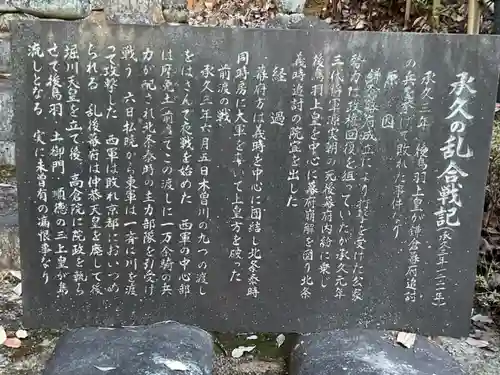 承久の乱合戦記(承久三年・一二二一年)
承久三年、後鳥羽上皇が鎌倉幕府追討
の兵を挙げて敗れた事件なり
原因
鎌倉幕府成立により打撃を受けた公家
勢力は政権回復を狙っていたが承久元年
三代将軍源実朝の死後幕府内紛に乗じ
後鳥羽上皇を中心に幕府崩解を図り北条
義時追討の院宣を出した
経過
幕府方は義時を中心に団結し北条泰時
同時房に大軍を率いて上皇方を破った
前渡の戦
承久三年六月五日木曽川の九つの渡し
をはさんで合戦を始めた 西軍の中心部
は府免土(前渡)でこの渡しに一万余騎の兵
力が配され北条泰時の主力部隊を引受け
戦う 六日払暁から東軍は一斉に川を渡
って攻撃した 西軍は敗れ京都においつめ
られる 乱後幕府は仲恭天皇を廃して後
堀川天皇を立て後、高倉院に院政を執ら
せて後鳥羽、土御門、順徳の三上皇が島
流しとなる 実に未曽有の痛恨事なり